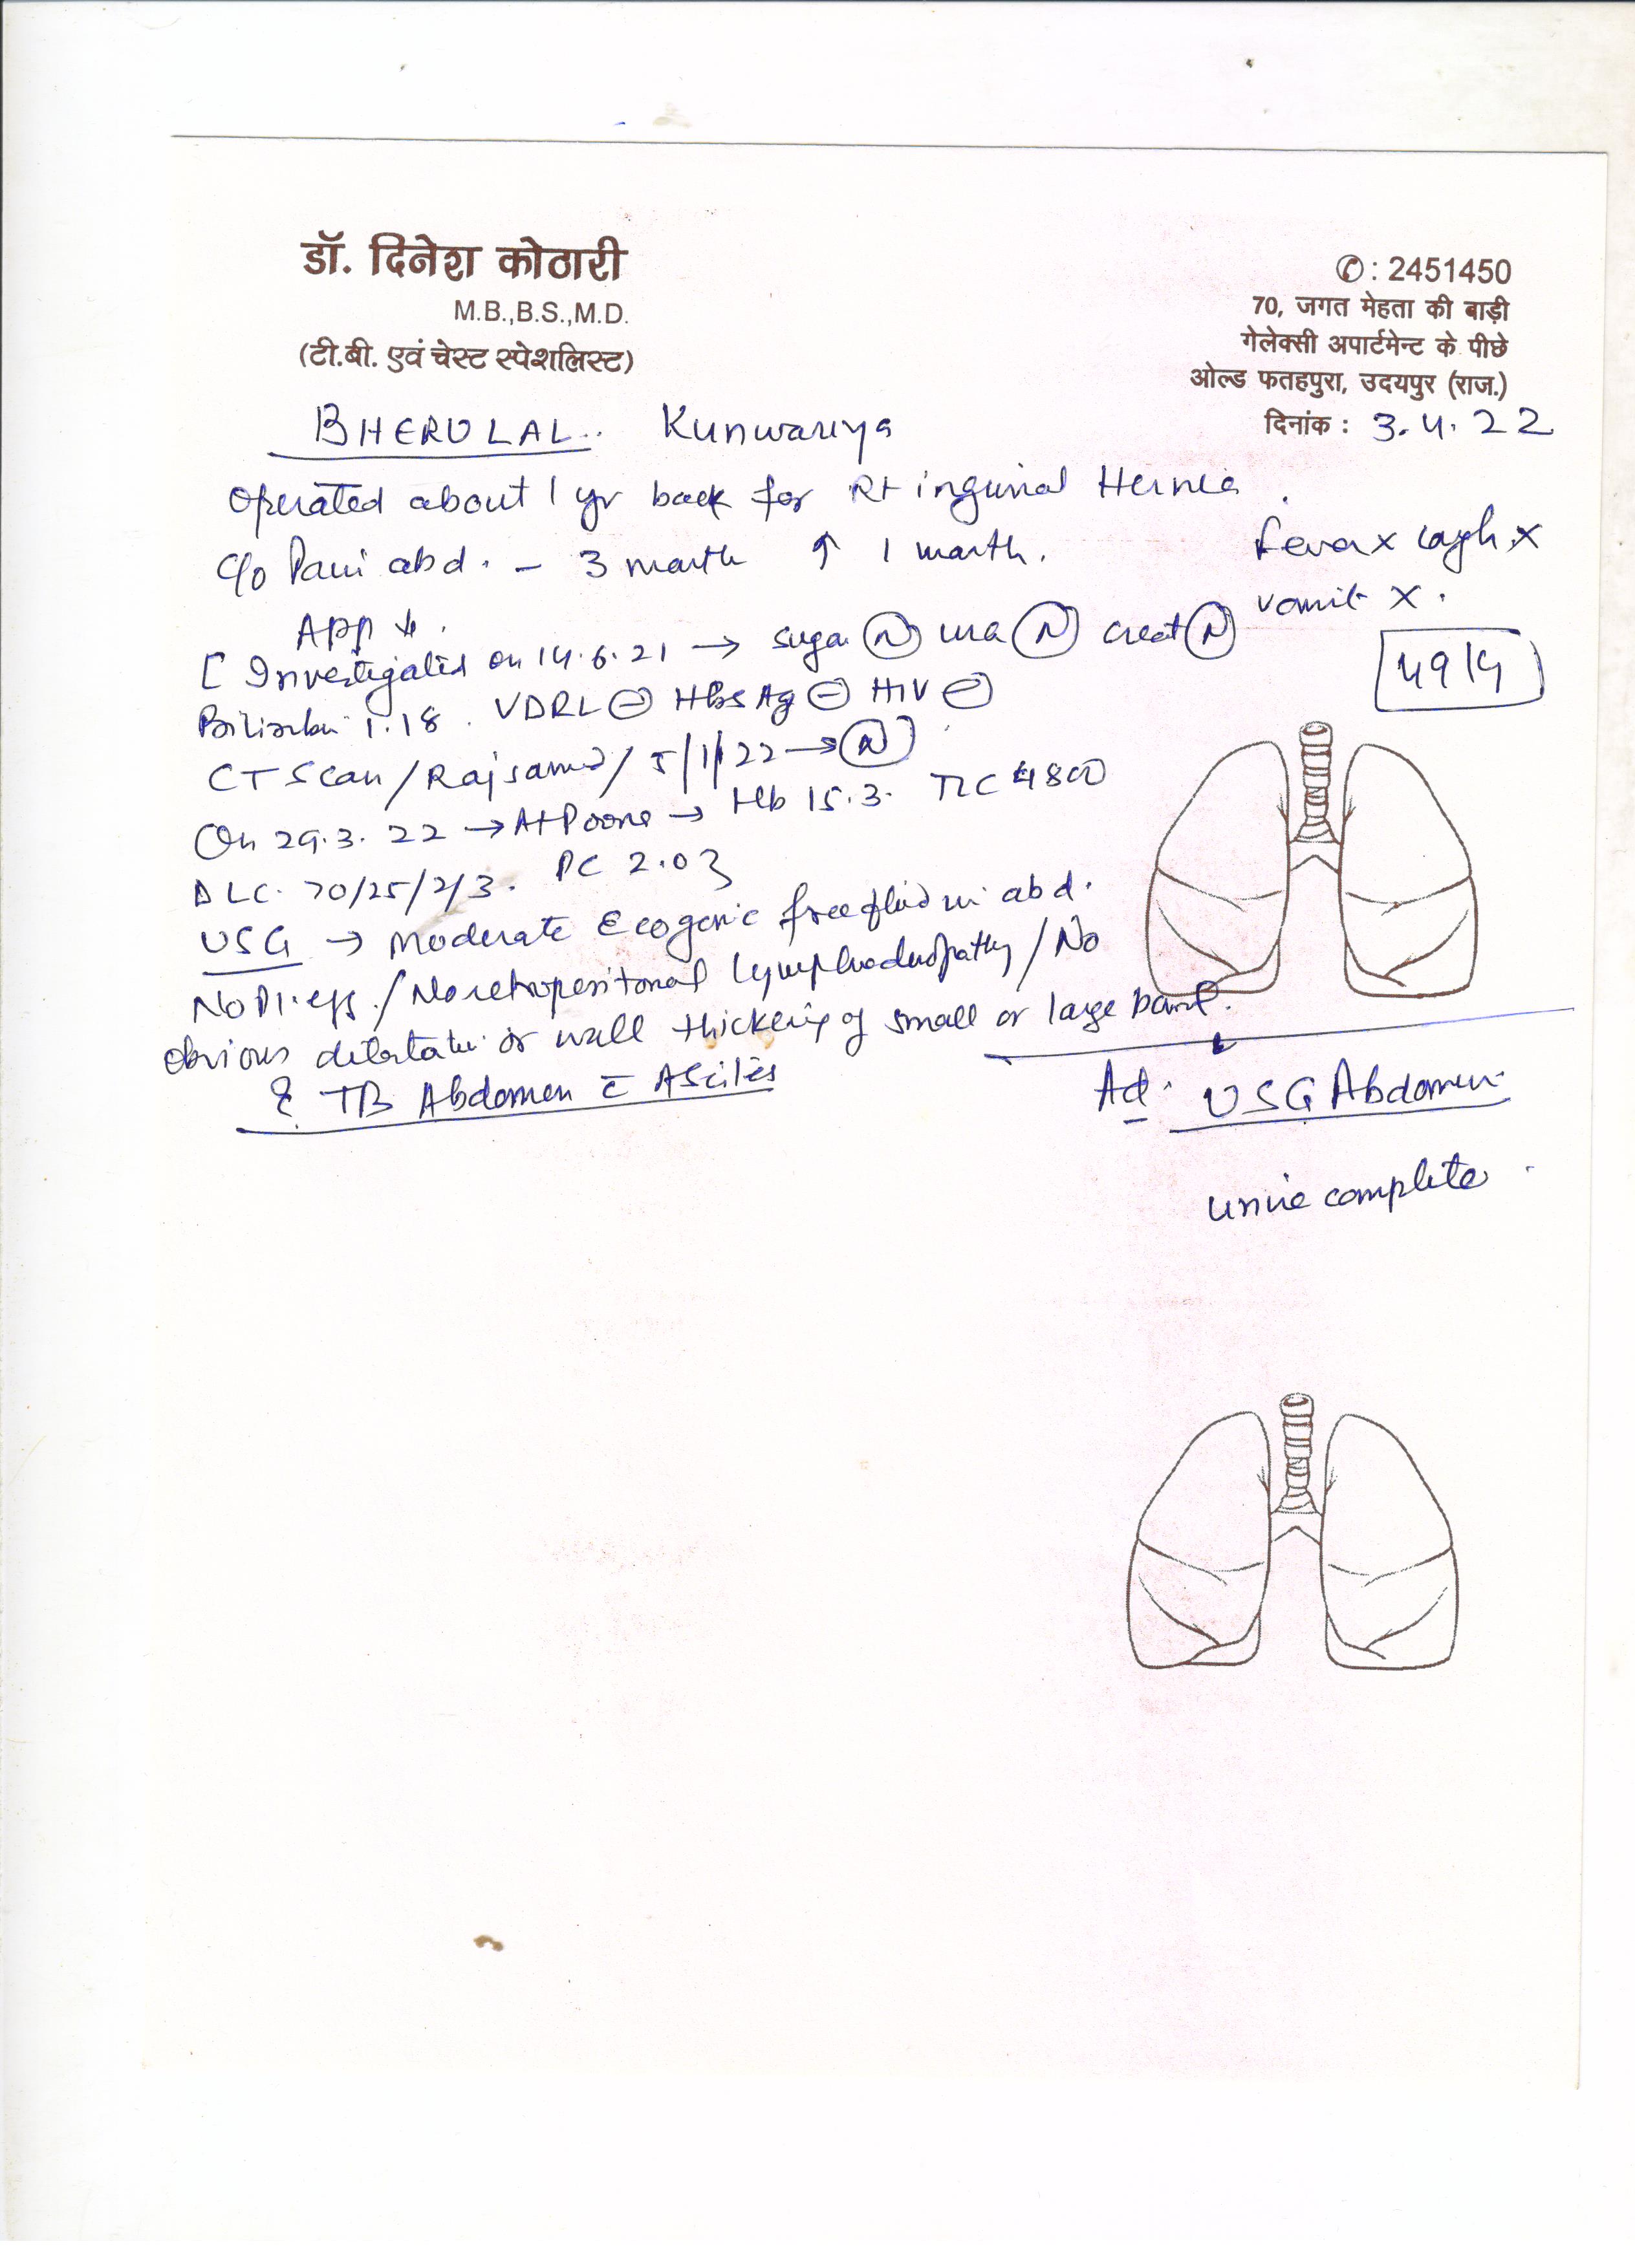 डॉ. दिनेश कोठारी
M.B.,B.S.,M.D.
(टी.बी. एवं चेस्ट स्पेशलिस्ट)
✆: 2451450
70, जगत मेहता की बाड़ी
गेलेक्सी अपार्टमेन्ट के पीछे
ओल्ड फतहपुरा, उदयपुर (राज.)
दिनांक : 3.4.22
BHERULAL.. Kunwariya
Operated about 1 yr back for Rt inguinal Hernia.
C/o Pain abd. - 3 month ↑ 1 month.
fever x cough x
vomit x.
App ↓.
[Investigated on 14.6.21 → sugar (N) urea (N) creat (N)
49/4
Bilirubin 1.18. VDRL ⊖ HbsAg ⊖ HIV ⊖
CT Scan / Rajsamd / 5/1/22 → (N)]
On 29.3.22 → At Poona → Hb 15.3. TLC 4800
DLC. 70/25/2/3. PC 2.03
USG → Moderate Ecogenic free fluid in abd.
No Pl. eff. / No retroperitoneal lymphadenopathy / No
obvious dilatation or wall thickening of small or large bowel.
? TB Abdomen c̄ Ascites
Ad. USG Abdomen
urine complete